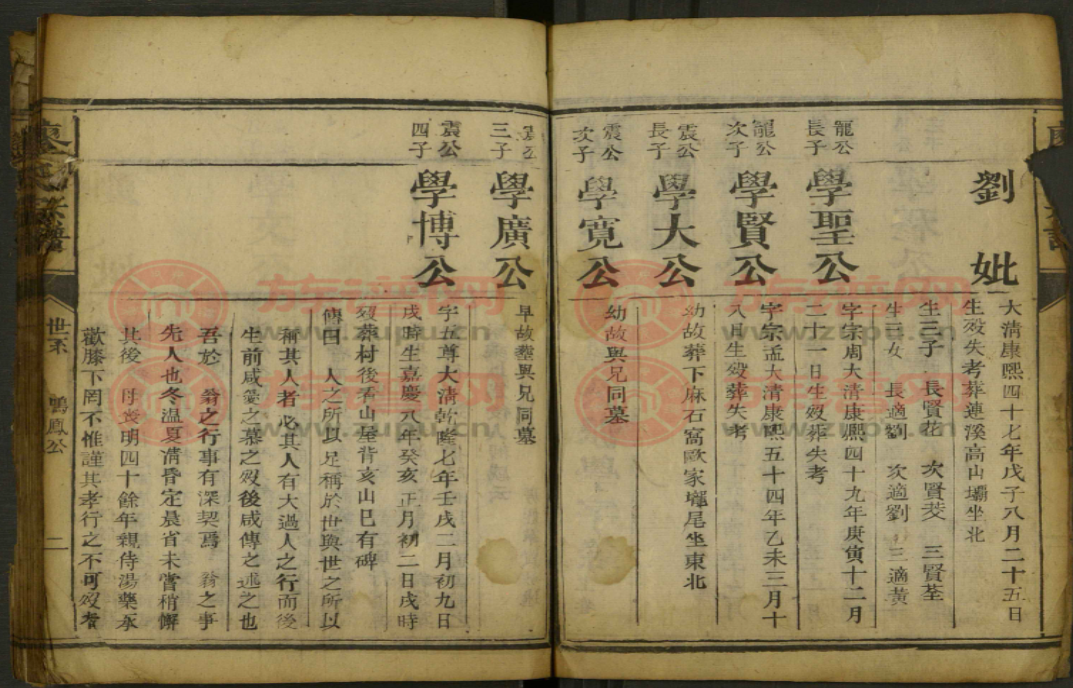 劉妣
大清康熙四十七年戊子八月二十五日
生歿失考葬蓮溪高山壩坐北
生三子 長賢花 次賢芠 三賢荃
生三女 長適劉 次適劉 三適黃
寵公長子
學聖公
字宗周大清康熙四十九年庚寅十二月
二十一日生歿葬失考
寵公次子
學賢公
字宗孟大清康熙五十四年乙未三月十
八日生歿葬失考
震公長子
學大公
幼故葬下麻石窩歐家壠尾坐東北
震公次子
學寛公
幼故與兄同墓
震公三子
學廣公
早故塟與兄同墓
震公四子
學博公
字五尊大清乾隆七年壬戌二月初九日
戌時生嘉慶八年癸亥正月初二日戌時
歿葬村後看山屋背亥山巳有碑
傳曰 人之所以足稱於世與世之所以
稱其人者必其人有大過人之行而後
生前咸愛之慕之歿後咸傳之述之也
吾於 翁之行事有深契焉 翁之事
先人也冬溫夏凊昏定晨省未嘗稍懈
其後 母喪明四十餘年親侍湯藥承
歡膝下罔不惟謹其孝行之不可歿者
世系 鳴鳳公 二
方宇族譜網
www.zupu.cn